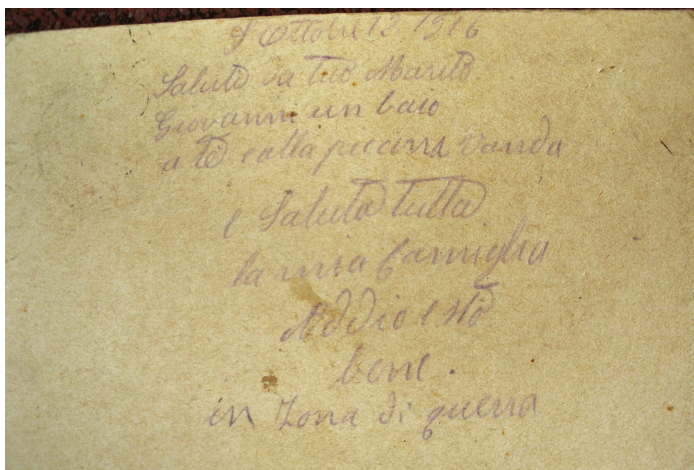 Ottobre 12 1916
Saluto da tuo Marito
Giovanni un bacio
a te e alla piccina Vanda
e Saluta tutta
la mia famiglia
Addio e stò
bene.
in Zona di guerra